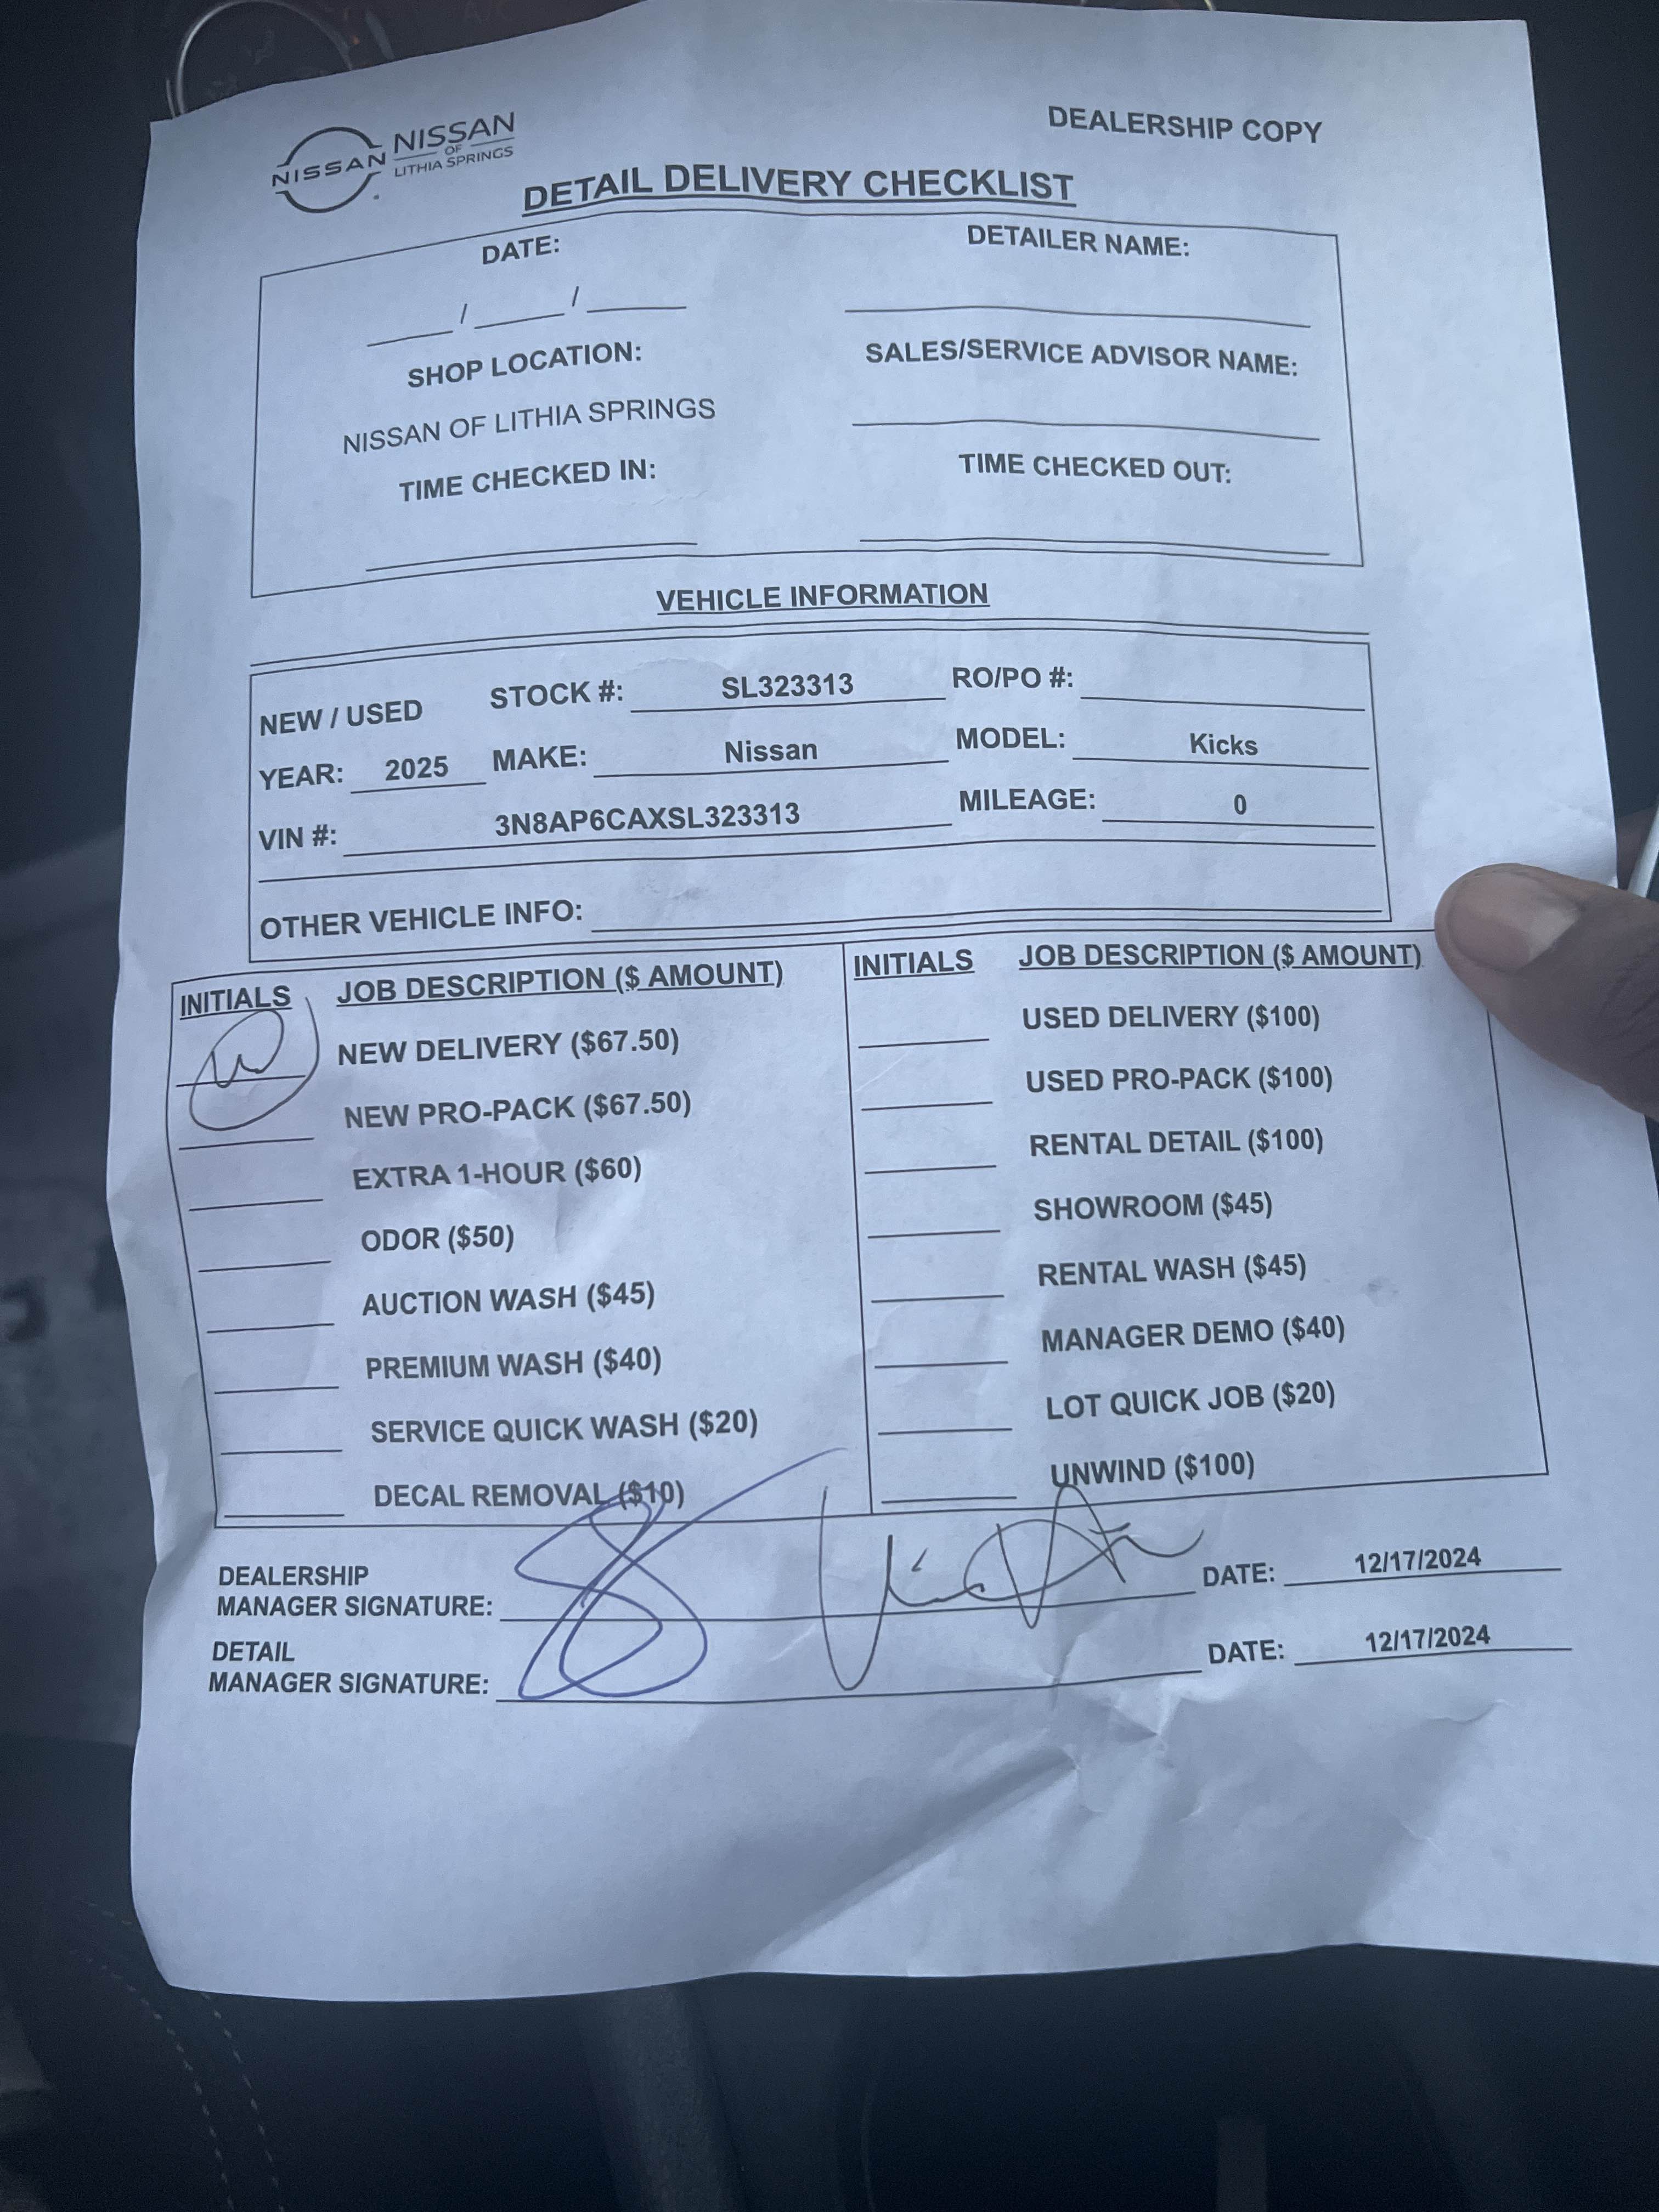 DEALERSHIP COPY
NISSAN
NISSAN
OF
LITHIA SPRINGS
DETAIL DELIVERY CHECKLIST
DATE: DETAILER NAME:
____/____/____ ____________
SHOP LOCATION: SALES/SERVICE ADVISOR NAME:
NISSAN OF LITHIA SPRINGS
TIME CHECKED IN: TIME CHECKED OUT:
VEHICLE INFORMATION
NEW / USED STOCK #: SL323313 RO/PO #:
YEAR: 2025 MAKE: Nissan MODEL: Kicks
VIN #: 3N8AP6CAXSL323313 MILEAGE: 0
OTHER VEHICLE INFO:
INITIALS JOB DESCRIPTION ($ AMOUNT) INITIALS JOB DESCRIPTION ($ AMOUNT)
NEW DELIVERY ($67.50) USED DELIVERY ($100)
NEW PRO-PACK ($67.50) USED PRO-PACK ($100)
EXTRA 1-HOUR ($60) RENTAL DETAIL ($100)
ODOR ($50) SHOWROOM ($45)
AUCTION WASH ($45) RENTAL WASH ($45)
PREMIUM WASH ($40) MANAGER DEMO ($40)
SERVICE QUICK WASH ($20) LOT QUICK JOB ($20)
DECAL REMOVAL ($10) UNWIND ($100)
DEALERSHIP
MANAGER SIGNATURE: DATE: 12/17/2024
DETAIL
MANAGER SIGNATURE: DATE: 12/17/2024